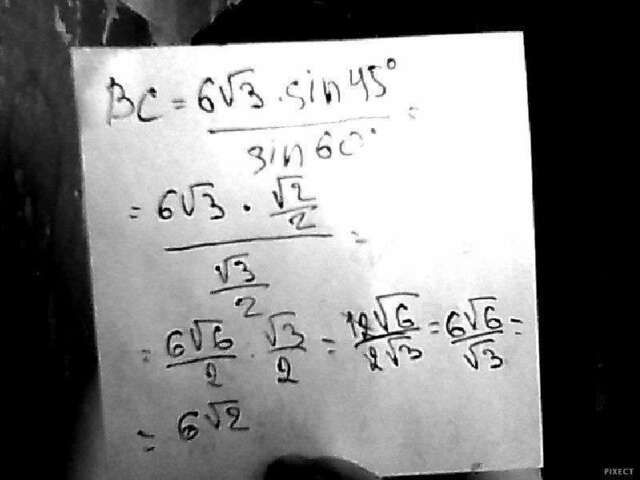 BC = 6√3 · sin 45° / sin 60° =
= 6√3 · √2/2 / √3/2 =
= 6√6/2 · √3/2 = 12√6/2√3 = 6√6/√3 =
= 6√2
PIXECT